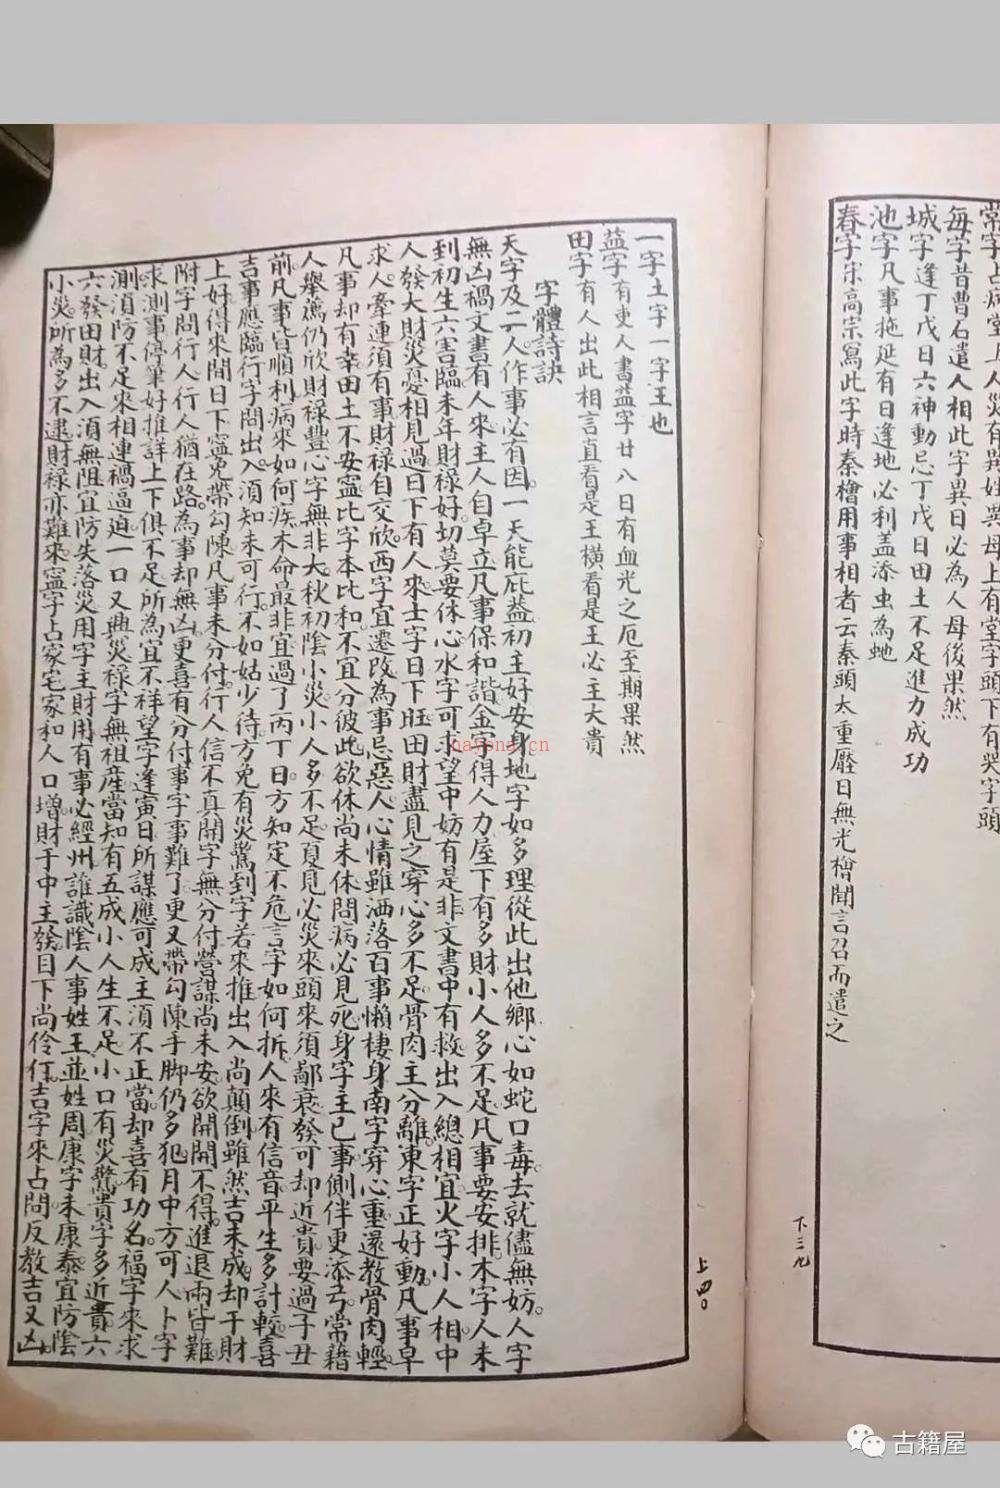 常字占爐堂上人災有異姓異母上有堂字頭下有哭字頭
每字昔曹石遣人相此字異日必為人母後果然
城字逢丁戊日六神動忌丁戊日田土不足進力成功
池字凡事拖延有日逢地必利蓋添虫為虵
春字宋高宗寫此字時秦檜用事相者云秦頭太重壓日無光檜聞言召而遣之
下三九
一字土字一字王也
益字有吏人書益字廿八日有血光之厄至期果然
田字有人出此相言直看是王橫看是王必主大貴
字體詩訣
天字及二人作事必有因一天能庇益初主好安身地字如多理從此出他鄉心如蛇口毒去就儘無妨人字
無凶禍文書有人來主人自卓立凡事保和諧金字得人力屋下有多財小人多不足凡事要安排木字人未
到初生六害臨未年財祿好切莫要休心水字可求望中妨有是非文書中有救出入總相宜火字小人相中
人發大財災憂相見過日下有人來土字日下旺田財盡見之穿心多不足骨肉主分離東字正好動凡事早
求人牽連須有事財祿自交欣西字宜遷改為事忌惡人心情雖洒落百事懶棲身南字穿心重還教骨肉輕
凡事却有幸田土不安寧比字本比和不宜分彼此欲休尚未休問病必見死身字主己事側伴更添弓常藉
人舉薦仍欣財祿豐心字無非大秋初陰小災小人多不足夏見必災來頭來須鄙衰發可却近貴要過子丑
前凡事皆順利病來如何疾木命最非宜過了丙丁日方知定不危言字如何拆人來有信音平生多計較喜
吉事應臨行字問出入須知未可行不如姑少待方免有災驚到字若來推出入尚顛倒雖然吉未成却干財
上好得來問日下寧寃帶勾陳凡事未分付行人信不真開字無分付營謀尚未安欲開開不得進退兩皆難
附字問行人行人猶在路為事却無凶更喜有分付事字事難了更又帶勾陳手脚仍多犯月中方可人卜字
求測事停筆好推詳上下俱不足所為宜不祥望字逢寅日所謀應可成主須不正當却喜有功名福字來求
測須防不足來相連禍逼迫一口又興災祿字無祖産當知有五成小人生不足小口有災驚貴字多近貴六
六發田財出入須無阻宜防失落災用字主財用有事必經州誰識陰人事姓王並姓周康字未康泰宜防陰
小災所為多不逮財祿亦難來寧字占家宅家和人口增財于中主發目下尚伶仃吉字來占問反教吉又凶
上四〇
nayona.cn
古籍屋